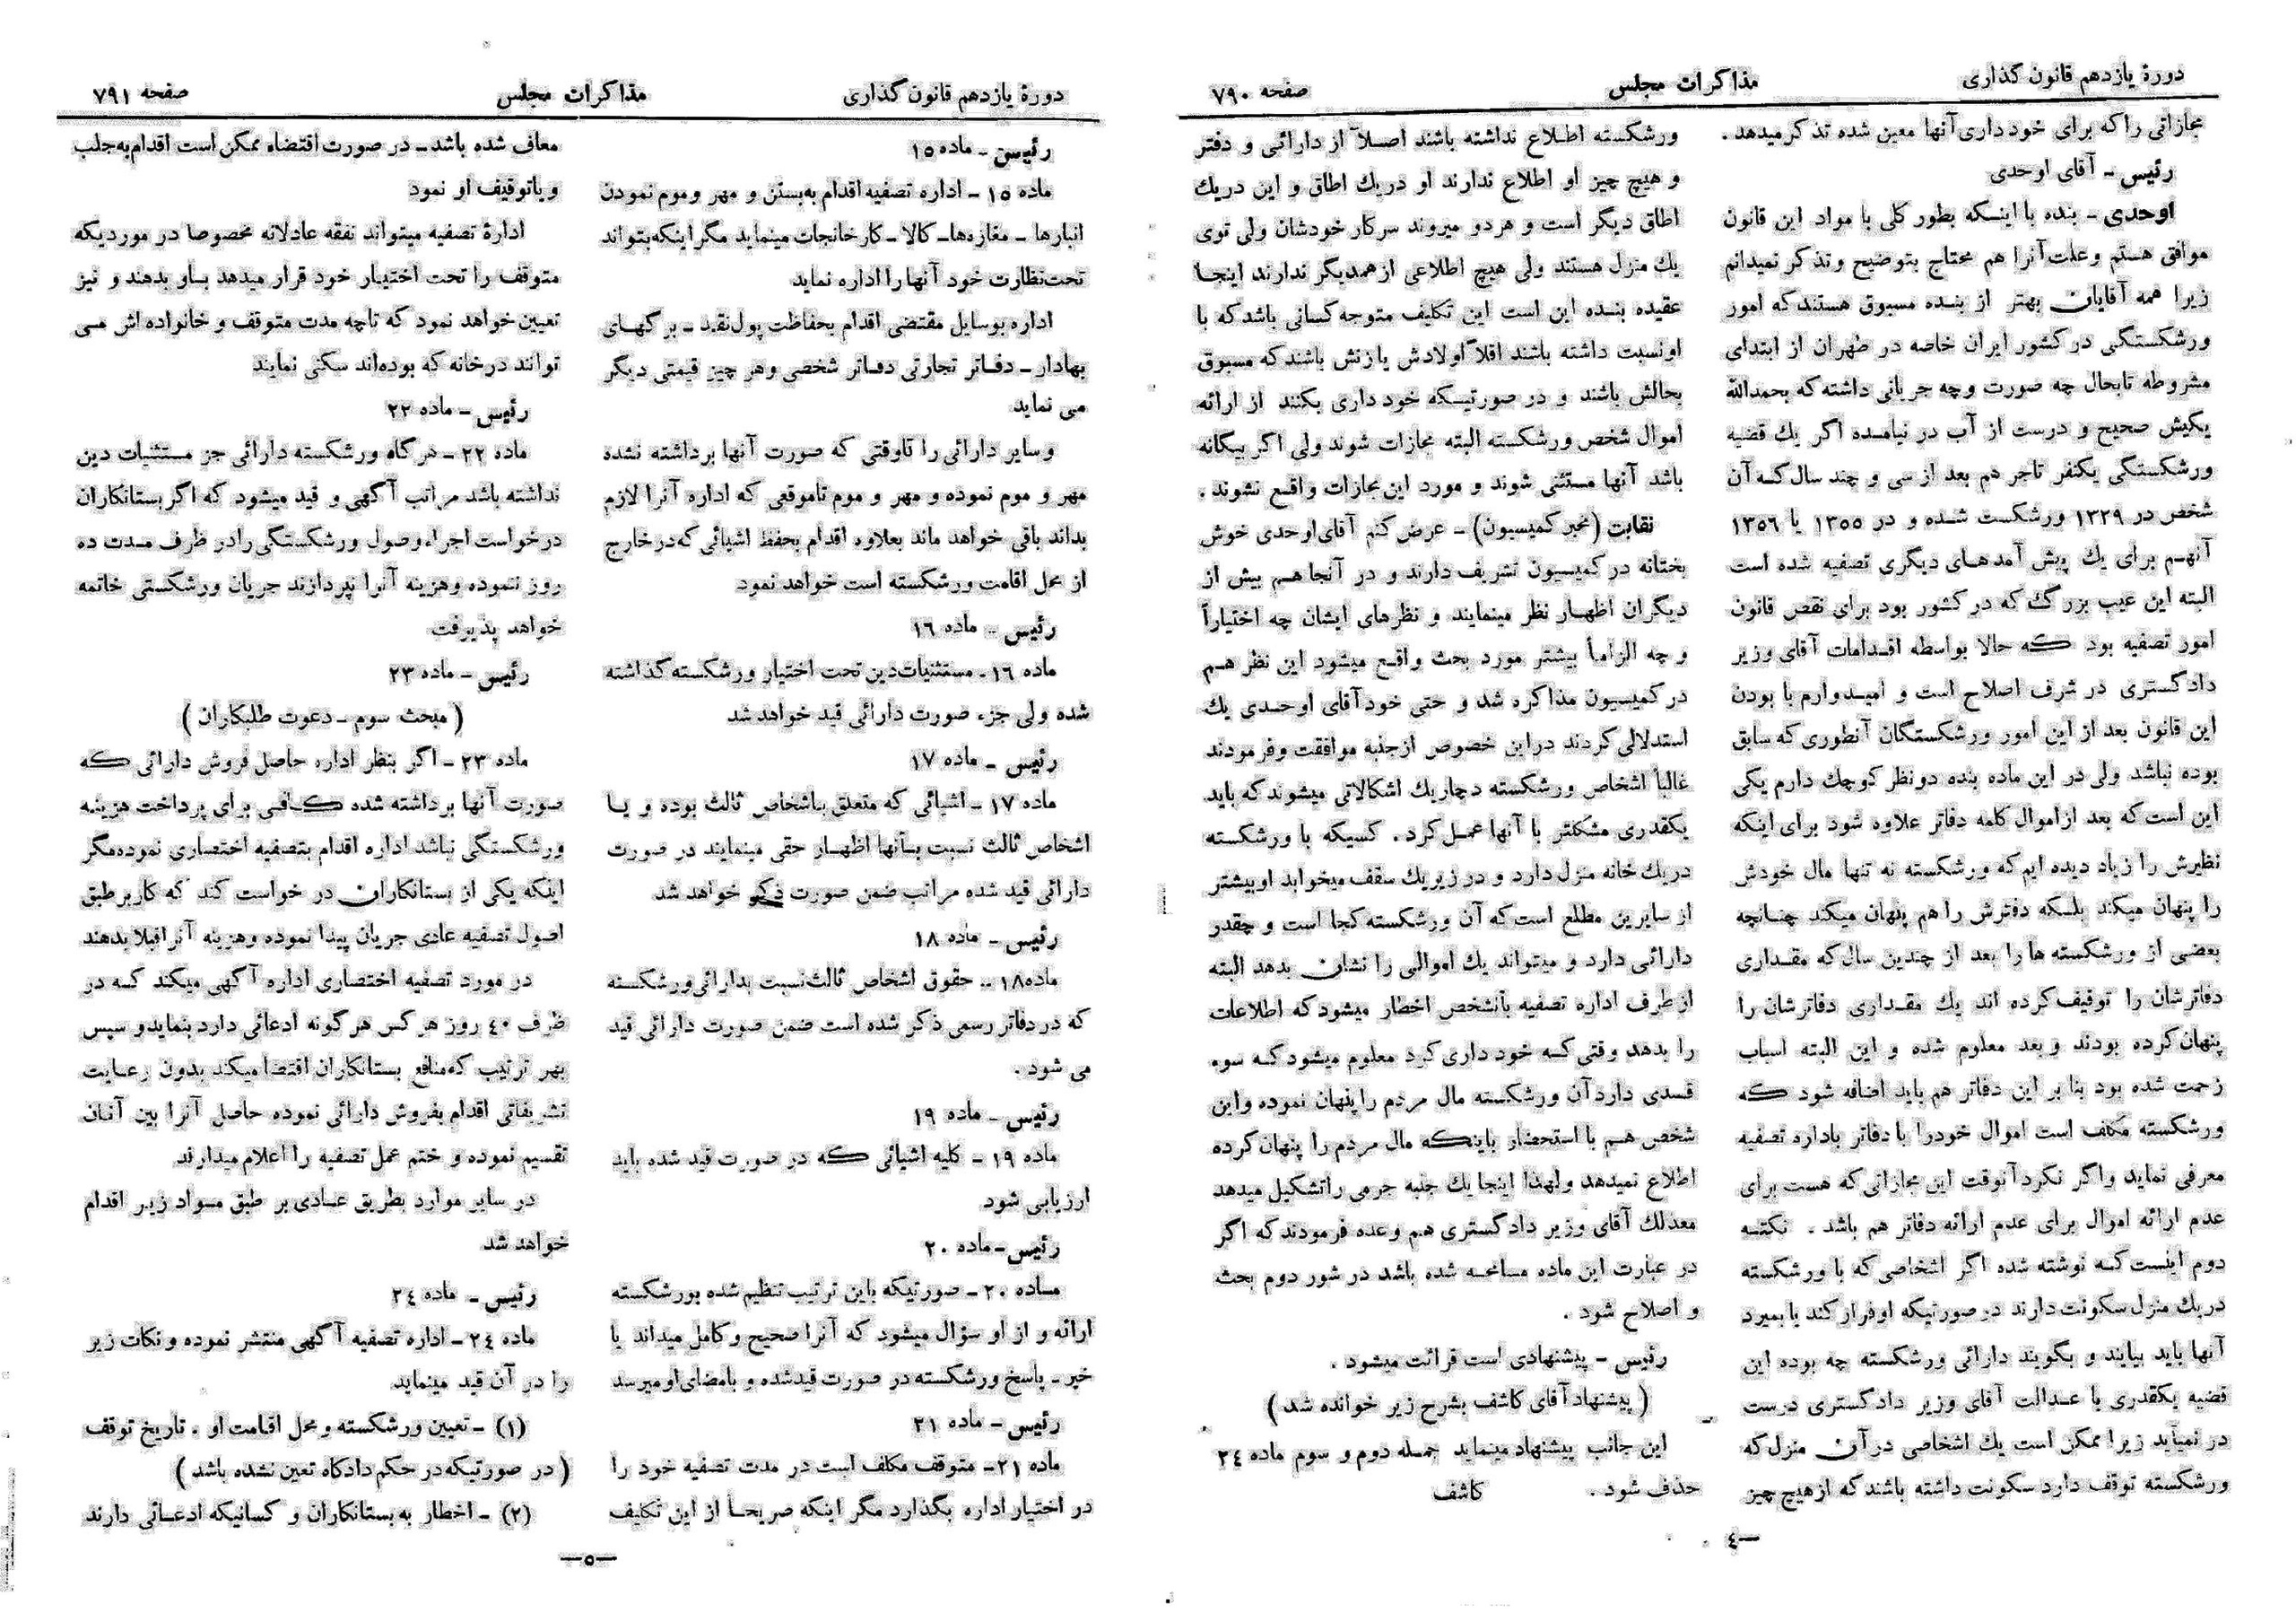 دورهٔ یازدهم قانون گذاری
مذاکرات مجلس
صفحه ۷۹۰
مجازاتی را که برای خود داری آنها معین شده تذکر میدهد .
رئیس - آقای اوحدی
اوحدی - بنده با اینکه بطور کلی با مواد این قانون
موافق هستم و علت آنرا هم محتاج بتوضیح و تذکر نمیدانم
زیرا همه آقایان بهتر از بنده مسبوق هستند که امور
ورشکستگی در کشور ایران خاصه در طهران از ابتدای
مشروطه تابحال چه صورت و چه جریانی داشته که بحمدالله
یکیش صحیح و درست از آب در نیامده اگر یك قضیه
ورشکستگی یکنفر تاجر هم بعد از سی و چند سال که آن
شخص در ۱۳۲۹ ورشکست شده و در ۱۳۵۵ یا ۱۳۵۶
آنهم برای یك پیش آمدهای دیگری تصفیه شده است
البته این عیب بزرگ که در کشور بود برای نقص قانون
امور تصفیه بود که حالا بواسطه اقدامات آقای وزیر
دادگستری در شرف اصلاح است و امیدوارم با بودن
این قانون بعد از این امور ورشکستگان آنطوری که سابق
بوده نباشد ولی در این ماده بنده دو نظر کوچك دارم یکی
این است که بعد از اموال کلمه دفاتر علاوه شود برای اینکه
نظیرش را زیاد دیده ایم که ورشکسته نه تنها مال خودش
را پنهان میکند بلکه دفترش را هم پنهان میکند چنانچه
بعضی از ورشکسته ها را بعد از چندین سال که مقداری
دفاترشان را توقیف کرده اند یك مقداری دفاترشان را
پنهان کرده بودند و بعد معلوم شده و این البته اسباب
زحمت شده بود بنا بر این دفاتر هم باید اضافه شود که
ورشکسته مکلف است اموال خود را با دفاتر باداره تصفیه
معرفی نماید و اگر نکرد آنوقت این مجازاتی که هست برای
عدم ارائه اموال برای عدم ارائه دفاتر هم باشد . نکته
دوم اینست که نوشته شده اگر اشخاصی که با ورشکسته
در یك منزل سکونت دارند در صورتیکه او فرار کند یا بمیرد
آنها باید بیایند و بگویند دارائی ورشکسته چه بوده این
قضیه یکقدری با عدالت آقای وزیر دادگستری درست
در نمیآید زیرا ممکن است یك اشخاصی در آن منزل که
ورشکسته توقف دارد سکونت داشته باشند که از هیچ چیز
ورشکسته اطلاع نداشته باشند اصلاً از دارائی و دفتر
و هیچ چیز او اطلاع ندارند او در یك اطاق و این در یك
اطاق دیگر است و هر دو میروند سر کار خودشان ولی توی
یك منزل هستند ولی هیچ اطلاعی از همدیگر ندارند اینجا
عقیده بنده این است این تکلیف متوجه کسانی باشد که با
او نسبت داشته باشند اقلاً اولادش یا زنش باشند که مسبوق
بحالش باشند و در صورتیکه خود داری بکنند از ارائه
اموال شخص ورشکسته البته مجازات شوند ولی اگر بیگانه
باشد آنها مستثنی شوند و مورد این مجازات واقع نشوند .
نقابت (مخبر کمیسیون) - عرض کنم آقای اوحدی خوش
بختانه در کمیسیون تشریف دارند و در آنجا هم بیش از
دیگران اظهار نظر مینمایند و نظرهای ایشان چه اختیاراً
و چه الزاماً بیشتر مورد بحث واقع میشود این نظر هم
در کمیسیون مذاکره شد و حتی خود آقای اوحدی یك
استدلالی کردند در این خصوص از جنبه موافقت و فرمودند
غالباً اشخاص ورشکسته دچار یك اشکالاتی میشوند که باید
یکقدری مشکلتر با آنها عمل کرد . کسیکه با ورشکسته
در یك خانه منزل دارد و در زیر یك سقف میخوابد او بیشتر
از سایرین مطلع است که آن ورشکسته کجا است و چقدر
دارائی دارد و میتواند یك اموالی را نشان بدهد البته
از طرف اداره تصفیه بآنشخص اخطار میشود که اطلاعات
را بدهد وقتی که خود داری کرد معلوم میشود که سوء
قصدی دارد آن ورشکسته مال مردم را پنهان نموده و این
شخص هم با استحضار باینکه مال مردم را پنهان کرده
اطلاع نمیدهد ولهذا اینجا یك جنبه جرمی را تشکیل میدهد
معذلك آقای وزیر دادگستری هم وعده فرمودند که اگر
در عبارت این ماده مسامحه شده باشد در شور دوم بحث
و اصلاح شود .
رئیس - پیشنهادی است قرائت میشود .
( پیشنهاد آقای کاشف بشرح زیر خوانده شد )
این جانب پیشنهاد مینماید جمله دوم و سوم ماده ۲۴
حذف شود . کاشف
—٤
دورهٔ یازدهم قانون گذاری
مذاکرات مجلس
صفحه ۷۹۱
رئیس - ماده ۱۵
ماده ۱۵ - اداره تصفیه اقدام به بستن و مهر و موم نمودن
انبارها - مغازه‌ها - کالا - کارخانجات مینماید مگر اینکه بتواند
تحت نظارت خود آنها را اداره نماید
اداره بوسایل مقتضی اقدام بحفاظت پول نقد - برگهای
بهادار - دفاتر تجارتی دفاتر شخصی و هر چیز قیمتی دیگر
می نماید
و سایر دارائی را تا وقتی که صورت آنها برداشته نشده
مهر و موم نموده و مهر و موم تا موقعی که اداره آنرا لازم
بداند باقی خواهد ماند بعلاوه اقدام بحفظ اشیائی که در خارج
از محل اقامت ورشکسته است خواهد نمود
رئیس - ماده ۱۶
ماده ۱۶ - مستثنیات دین تحت اختیار ورشکسته گذاشته
شده ولی جزء صورت دارائی قید خواهد شد
رئیس - ماده ۱۷
ماده ۱۷ - اشیائی که متعلق باشخاص ثالث بوده و یا
اشخاص ثالث نسبت بآنها اظهار حقی مینمایند در صورت
دارائی قید شده مراتب ضمن صورت ذکر خواهد شد
رئیس - ماده ۱۸
ماده ۱۸ - حقوق اشخاص ثالث نسبت بدارائی ورشکسته
که در دفاتر رسمی ذکر شده است ضمن صورت دارائی قید
می شود .
رئیس - ماده ۱۹
ماده ۱۹ - کلیه اشیائی که در صورت قید شده باید
ارزیابی شود
رئیس - ماده ۲۰
ماده ۲۰ - صورتیکه باین ترتیب تنظیم شده بورشکسته
ارائه و از او سؤال میشود که آنرا صحیح و کامل میداند یا
خیر - پاسخ ورشکسته در صورت قید شده و بامضای او میرسد
رئیس - ماده ۲۱
ماده ۲۱ - متوقف مکلف است در مدت تصفیه خود را
در اختیار اداره بگذارد مگر اینکه صریحاً از این تکلیف
معاف شده باشد - در صورت اقتضاء ممکن است اقدام به جلب
و یا توقیف او نمود
ادارهٔ تصفیه میتواند نفقه عادلانه مخصوصا در موردیکه
متوقف را تحت اختیار خود قرار میدهد باو بدهند و نیز
تعیین خواهد نمود که تا چه مدت متوقف و خانواده اش می
توانند در خانه که بوده‌اند سکنی نمایند
رئیس - ماده ۲۲
ماده ۲۲ - هر گاه ورشکسته دارائی جز مستثنیات دین
نداشته باشد مراتب آگهی و قید میشود که اگر بستانکاران
درخواست اجراء وصول ورشکستگی را در ظرف مدت ده
روز ننموده و هزینه آنرا نپردازند جریان ورشکستی خاتمه
خواهد پذیرفت
رئیس - ماده ۲۳
( مبحث سوم - دعوت طلبکاران )
ماده ۲۳ - اگر بنظر اداره حاصل فروش دارائی که
صورت آنها برداشته شده کافی برای پرداخت هزینه
ورشکستگی نباشد اداره اقدام بتصفیه اختصاری نموده مگر
اینکه یکی از بستانکاران در خواست کند که کار بر طبق
اصول تصفیه عادی جریان پیدا نموده و هزینه آنرا قبلا بدهند
در مورد تصفیه اختصاری اداره آگهی میکند که در
ظرف ۴۰ روز هر کس هر گونه ادعائی دارد بنماید و سپس
بهر ترتیب که منافع بستانکاران اقتضا میکند بدون رعایت
تشریفاتی اقدام بفروش دارائی نموده حاصل آنرا بین آنان
تقسیم نموده و ختم عمل تصفیه را اعلام میدارند
در سایر موارد بطریق عادی بر طبق مواد زیر اقدام
خواهد شد
رئیس - ماده ۲۴
ماده ۲۴ - اداره تصفیه آگهی منتشر نموده و نکات زیر
را در آن قید مینماید
(۱) - تعیین ورشکسته و محل اقامت او . تاریخ توقف
( در صورتیکه در حکم دادگاه تعین نشده باشد )
(۲) - اخطار به بستانکاران و کسانیکه ادعائی دارند
—۵—